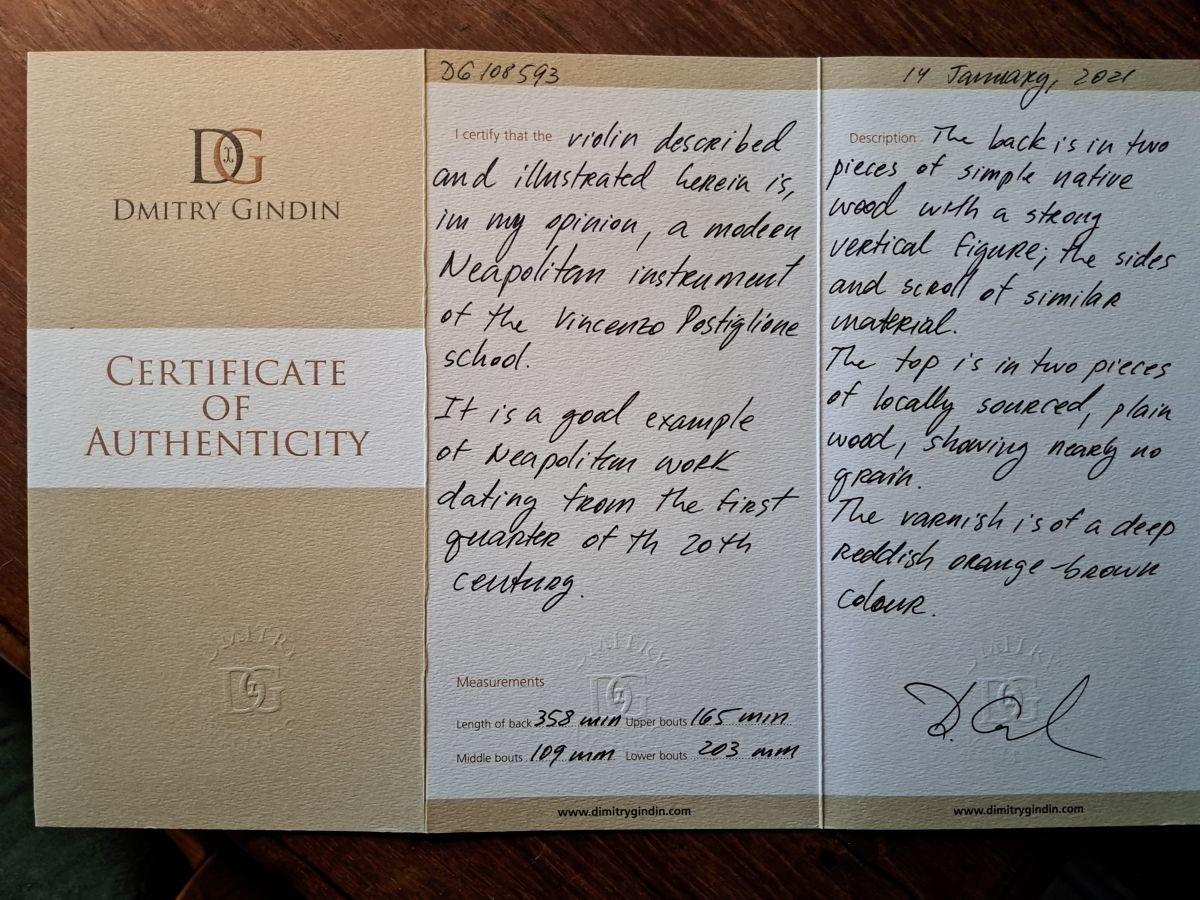 DG
DMITRY GINDIN
CERTIFICATE
OF
AUTHENTICITY
DMITRY
DG
DG 108593
I certify that the violin described
and illustrated herein is,
in my opinion, a modern
Neapolitan instrument
of the Vincenzo Postiglione
school.
It is a good example
of Neapolitan work
dating from the first
quarter of th 20th
century.
DMITRY
DG
Measurements
Length of back 358 mm Upper bouts 165 mm
Middle bouts 109 mm Lower bouts 203 mm
www.dimitrygindin.com
14 January, 2021
Description The back is in two
pieces of simple native
wood with a strong
vertical figure; the sides
and scroll of similar
material.
The top is in two pieces
of locally sourced, plain
wood, showing nearly no
grain.
The varnish is of a deep
reddish orange-brown
colour.
DMITRY
DG
www.dimitrygindin.com